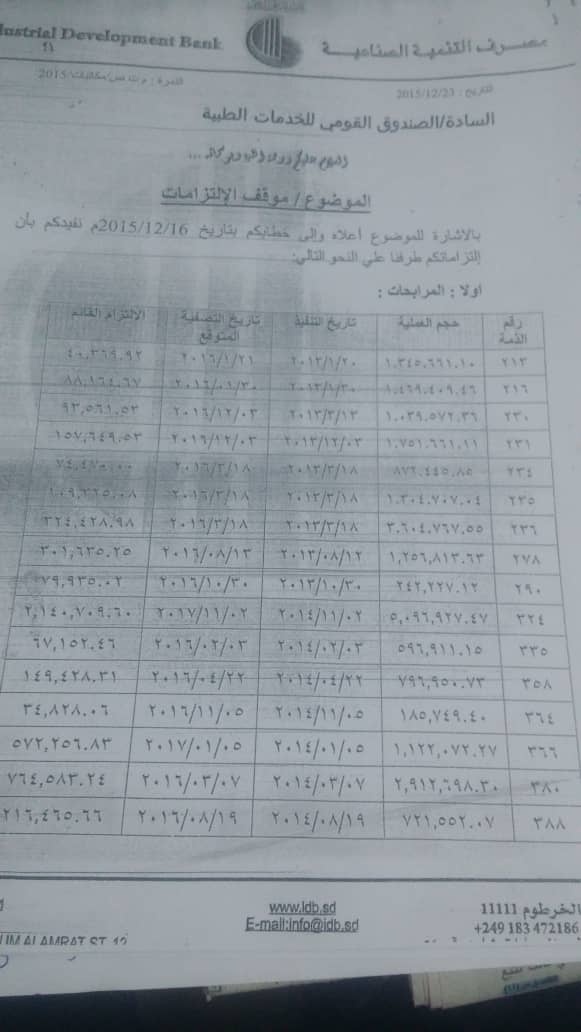 Industrial Development Bank
مصرف التنمية الصناعية
2015
التاريخ : 2015/12/23
السادة/الصندوق القومى للخدمات الطبية
الموضوع / موقف الإلتزامات
بالاشارة للموضوع أعلاه وإلى خطابكم بتاريخ 2015/12/16م نفيدكم بأن
إلتزاماتكم طرفنا علي النحو التالي:
اولا : المرابحات :
رقم الذمة حجم العملية تاريخ التنفيذ تاريخ التصفية المتوقع الإلتزام القائم
٢١٣ ٢٠١٣/١/٢٠ ٢٠١٦/١/٢١
٢١٦
٢٣٠ ١,٠٣٩,٥٧٢.٣٦ ٢٠١٣/٣/١٣ ٢٠١٦/١٢/٠٣ ٩٣,٥٦١.٥٣
٢٣١ ١,٧٥١,٦٦١.١١ ٢٠١٣/١٢/٠٣ ٢٠١٦/١٢/٠٣ ١٥٧,٦٤٩.٥٣
٢٣٤ ٨٧٢,٤٤٥.٨٥ ٢٠١٣/٣/١٨ ٢٠١٦/٣/١٨
٢٣٥ ٢٠١٣/٣/١٨ ٢٠١٦/٣/١٨
٢٣٦ ٣,٦٠٤,٧٦٧.٥٥ ٢٠١٣/٣/١٨ ٢٠١٦/٣/١٨ ٣٢٤,٤٢٨.٩٨
٢٧٨ ١,٢٥٦,٨١٣.٦٣ ٢٠١٣/٠٨/١٢ ٢٠١٦/٠٨/١٣ ٣٠١,٦٣٥.٢٥
٢٩٠ ٢٤٢,٢٢٧.١٢ ٢٠١٣/١٠/٣٠ ٢٠١٦/١٠/٣٠ ٧٩,٩٣٥.٠٢
٣٢٤ ٥,٠٩٦,٩٢٧.٤٧ ٢٠١٤/١١/٠٢ ٢٠١٧/١١/٠٢ ٢,١٤٠,٧٠٩.٦٠
٣٣٥ ٥٩٦,٩١١.١٥ ٢٠١٤/٠٢/٠٣ ٢٠١٦/٠٢/٠٣ ٦٧,١٥٢.٤٦
٣٥٨ ٧٩٦,٩٠٠.٧٣ ٢٠١٤/٠٤/٢٢ ٢٠١٦/٠٤/٢٢ ١٤٩,٤٢٨.٣١
٣٦٤ ١٨٥,٧٤٩.٤٠ ٢٠١٤/١١/٠٥ ٢٠١٦/١١/٠٥ ٣٤,٨٢٨.٠٦
٣٦٦ ١,١٢٢,٠٧٢.٢٧ ٢٠١٤/٠١/٠٥ ٢٠١٧/٠١/٠٥ ٥٧٢,٢٥٦.٨٣
٣٨٠ ٢,٩١٢,٦٩٨.٣٠ ٢٠١٤/٠٣/٠٧ ٢٠١٦/٠٣/٠٧ ٧٦٤,٥٨٣.٢٤
٣٨٨ ٧٢١,٥٥٢.٠٧ ٢٠١٤/٠٨/١٩ ٢٠١٦/٠٨/١٩ ٢١٦,٤٦٥.٦٦
الخرطوم 11111
www.idb.sd
+249 183 472186
E-mail:info@idb.sd
ALAMRAT ST. 12